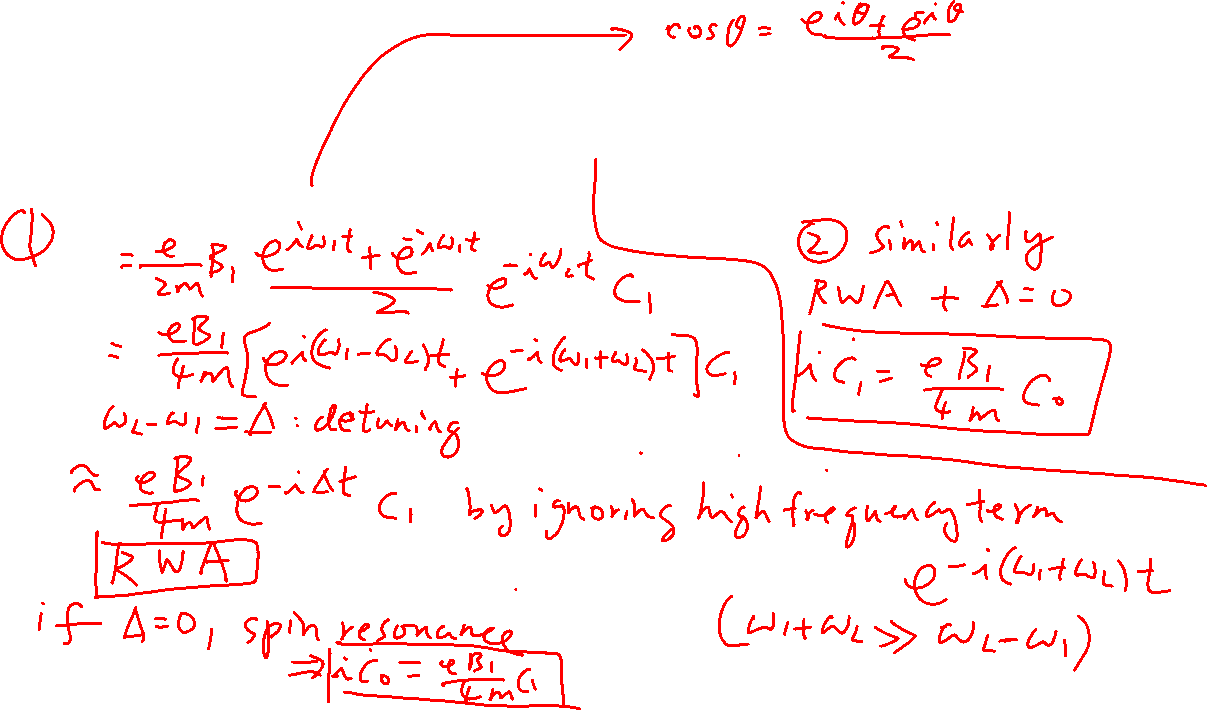 cosθ = (e^{iθ} + e^{-iθ})/2
①
= e/2m B₁ (e^{iω₁t} + e^{-iω₁t})/2 e^{-iω_L t} C₁
= eB₁/4m [e^{i(ω₁-ω_L)t} + e^{-i(ω₁+ω_L)t}] C₁
ω_L - ω₁ = Δ : detuning
≈ eB₁/4m e^{-iΔt} C₁ by ignoring high frequency term
e^{-i(ω₁+ω_L)t}
(ω₁+ω_L ≫ ω_L-ω₁)
RWA
if Δ=0, spin resonance
⇒ iĊ₀ = eB₁/4m C₁
② similarly
RWA + Δ=0
iĊ₁ = eB₁/4m C₀